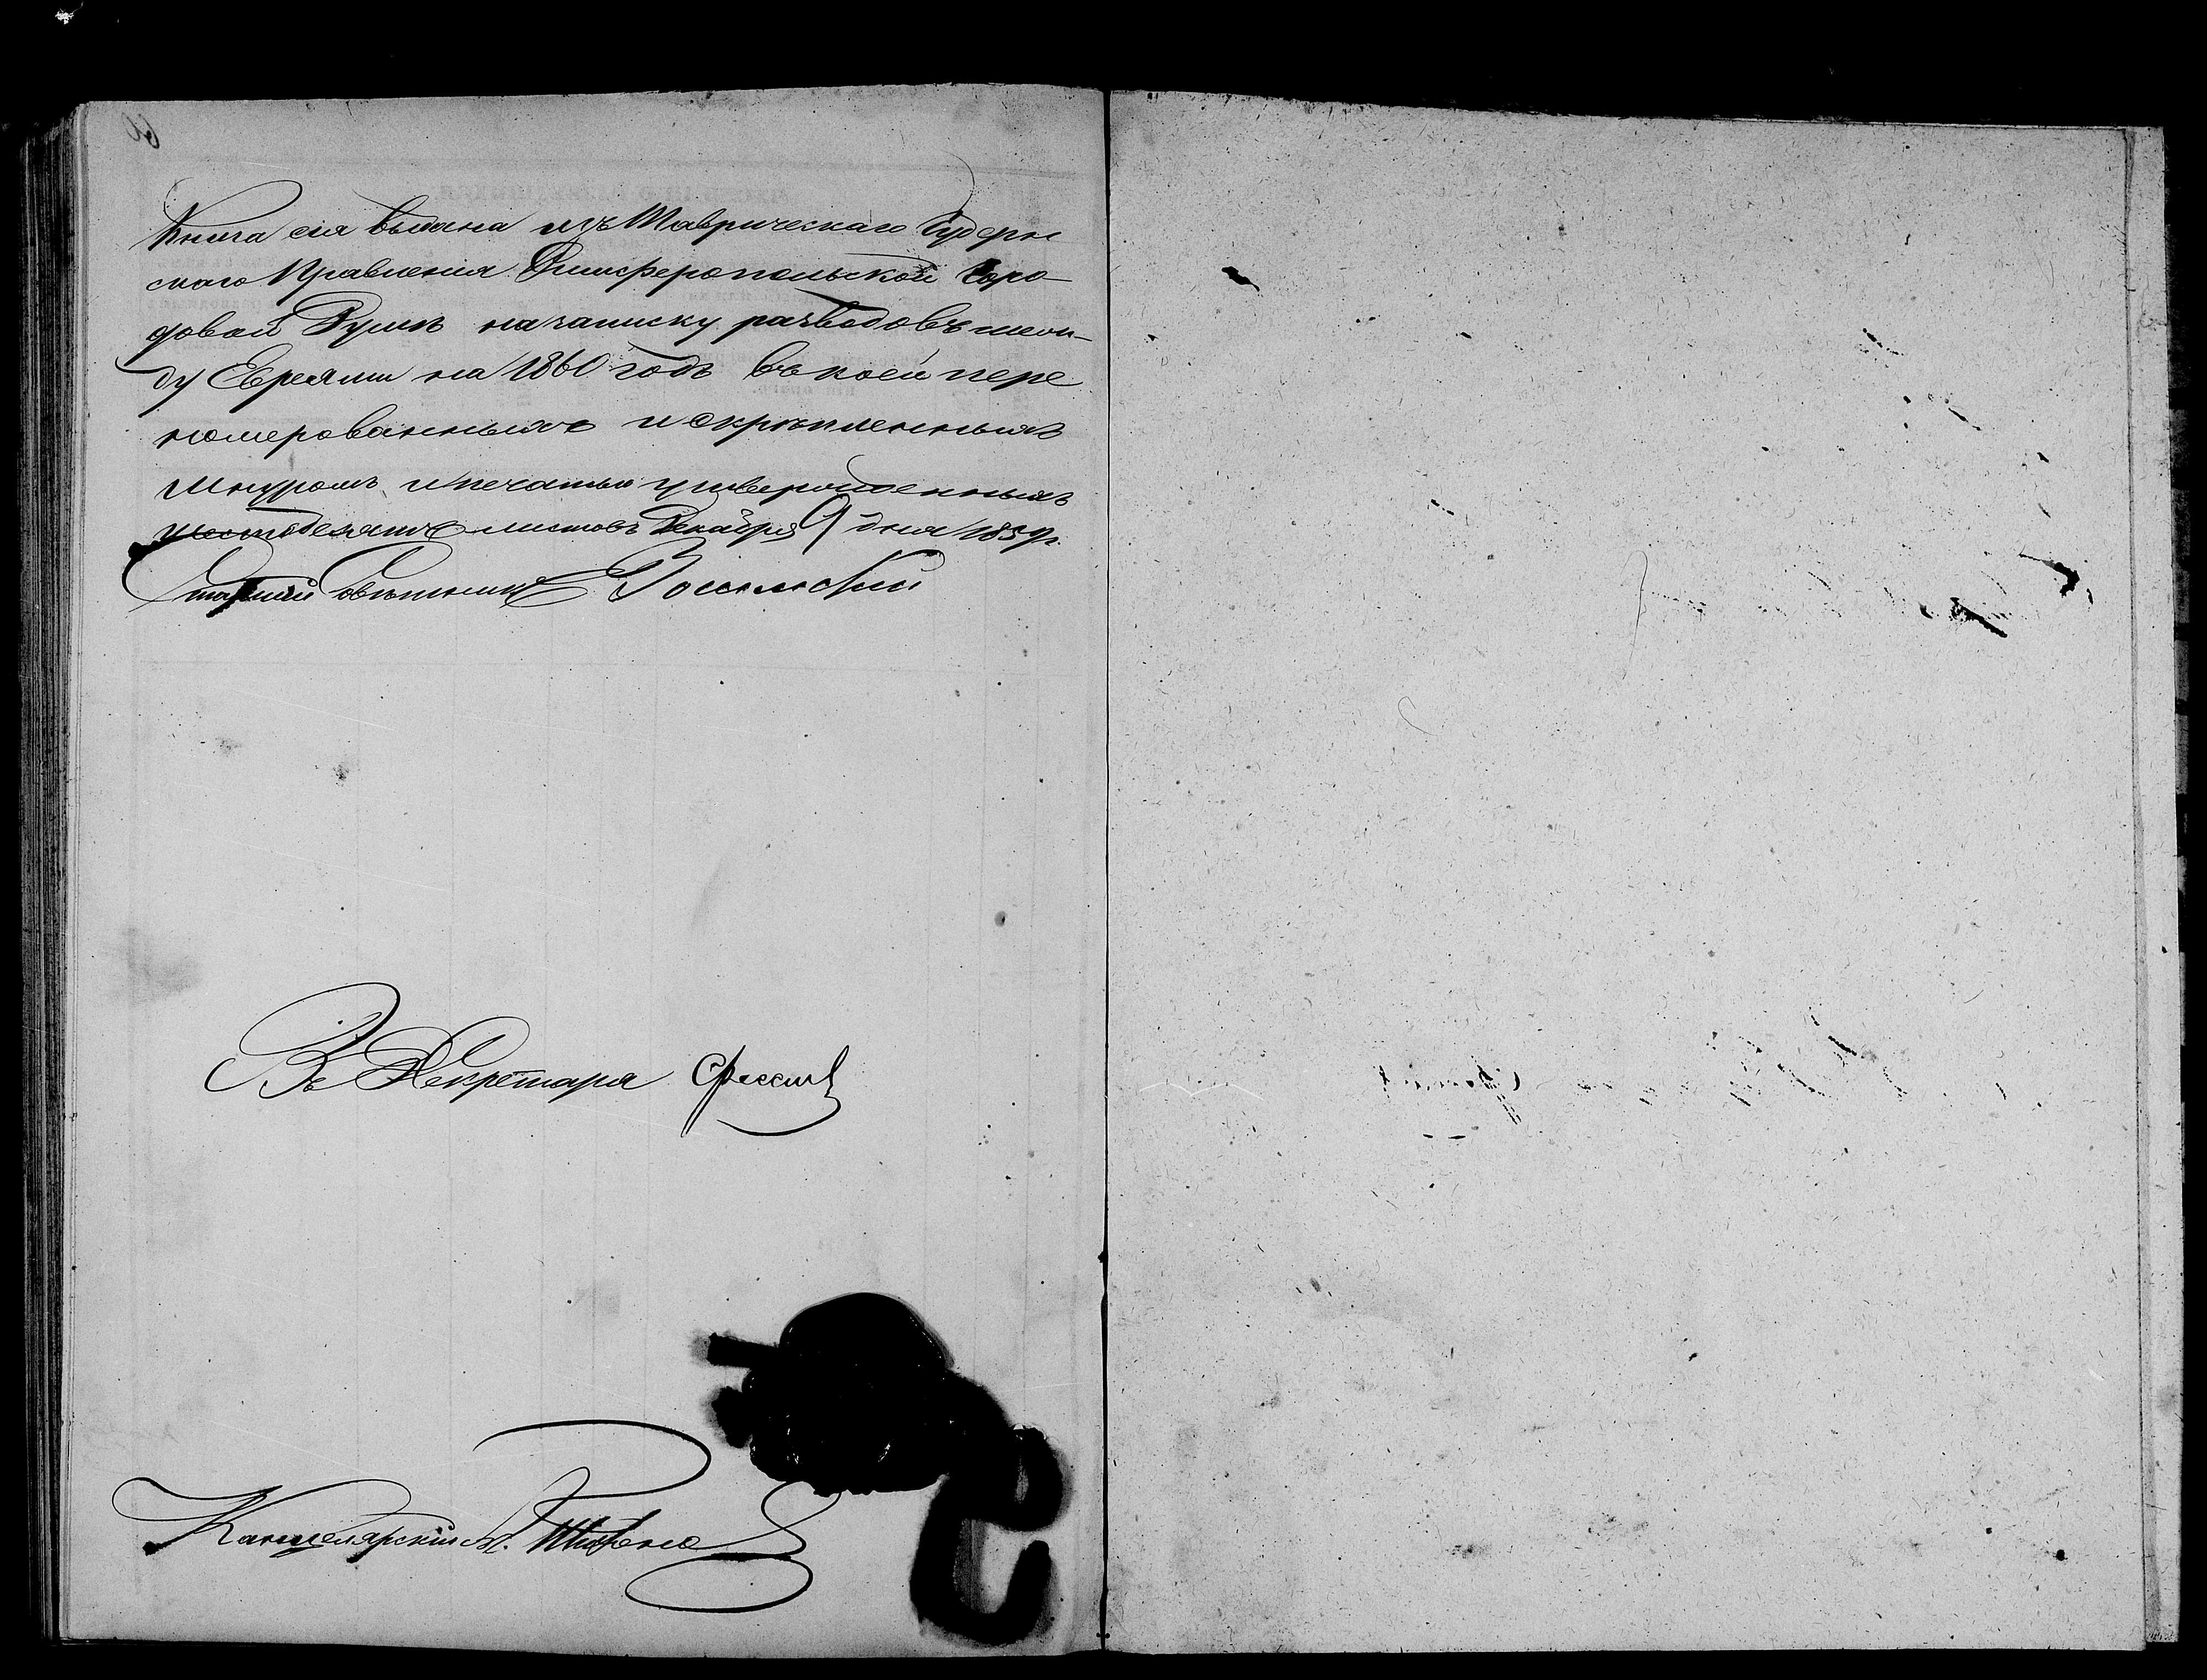 Книга сія выдана изъ Таврическаго Губерн
скаго Правленія Симферопольской Горо-
довой Думѣ на записку разводовъ меж-
ду Евреями на 1860 годъ въ коей пере
номерованныхъ и скрѣпленныхъ
шнуромъ и печатью утвержденныхъ
шестьдесятъ листовъ Декабря 9 дня 1859 г.
Старшій Совѣтникъ
За Секретаря
Канцелярскій